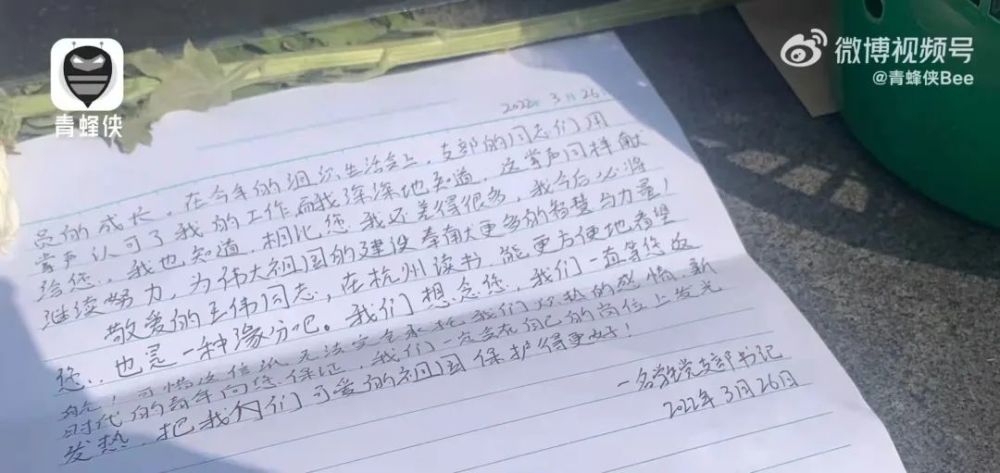 青蜂侠
微博视频号
@青蜂侠Bee
2022年3月26
员的成长,在今年的组织生活会上,支部的同志们用
掌声认可了我的工作,而我深深地知道,这掌声同样献
给您。我也知道,相比您,我还差得很多,我今后必将
继续努力,为伟大祖国的建设奉献更多的智慧与力量!
敬爱的王伟同志,在杭州读书,能更方便地看望
您,也是一种缘分吧。我们想念您,我们一直等您返
航!可惜这信纸无法完全承托我们的感情,新
时代的青年向您保证,我们一定会在自己的岗位上发光
发热,把我们可爱的祖国保护得更好!
一名学生党支部书记
2022年3月26日